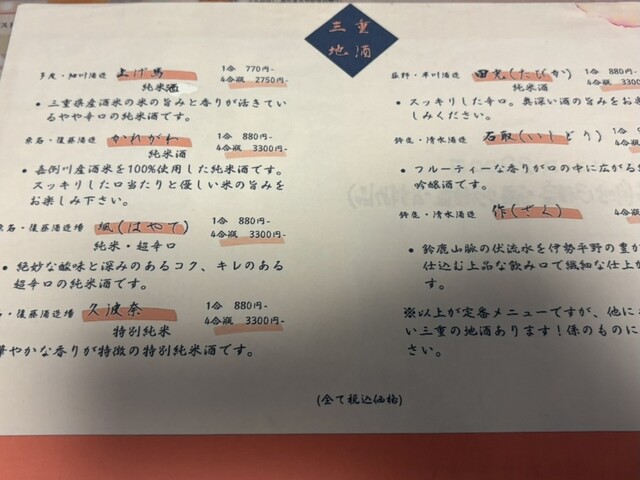 三重
地酒
多度・細川酒造 上げ馬 1合 770円-
純米酒 4合瓶 2750円-
・三重県産酒米の米の旨みと香りが活きてい
るやや辛口の純米酒です。
桑名・後藤酒造 かれがわ 1合 880円-
純米酒 4合瓶 3300円-
・嘉例川産酒米を100%使用した純米酒です。
スッキリした口当たりと優しい米の旨みを
お楽しみ下さい。
桑名・後藤酒造場 颯(はやて) 1合 880円-
純米・超辛口 4合瓶 3300円-
・絶妙な酸味と深みのあるコク、キレのある
超辛口の純米酒です。
・後藤酒造場 久波奈 1合 880円-
特別純米 4合瓶 3300円-
華やかな香りが特徴の特別純米酒です。
菰野・早川酒造 田光(たびか) 1合 880円-
純米酒 4合瓶 3300
・スッキリした辛口。奥深い酒の旨みをお楽
しみください。
鈴鹿・清水酒造 石取(いしどり)
4合
・フルーティーな香りが口の中に広がる純
吟醸酒です。
鈴鹿・清水酒造 作(ざく)
・鈴鹿山脈の伏流水を伊勢平野の豊か
仕込む上品な飲み口で繊細な仕上が
※以上が定番メニューですが、他に
い三重の地酒あります!係のものに
さい。
(全て税込価格)